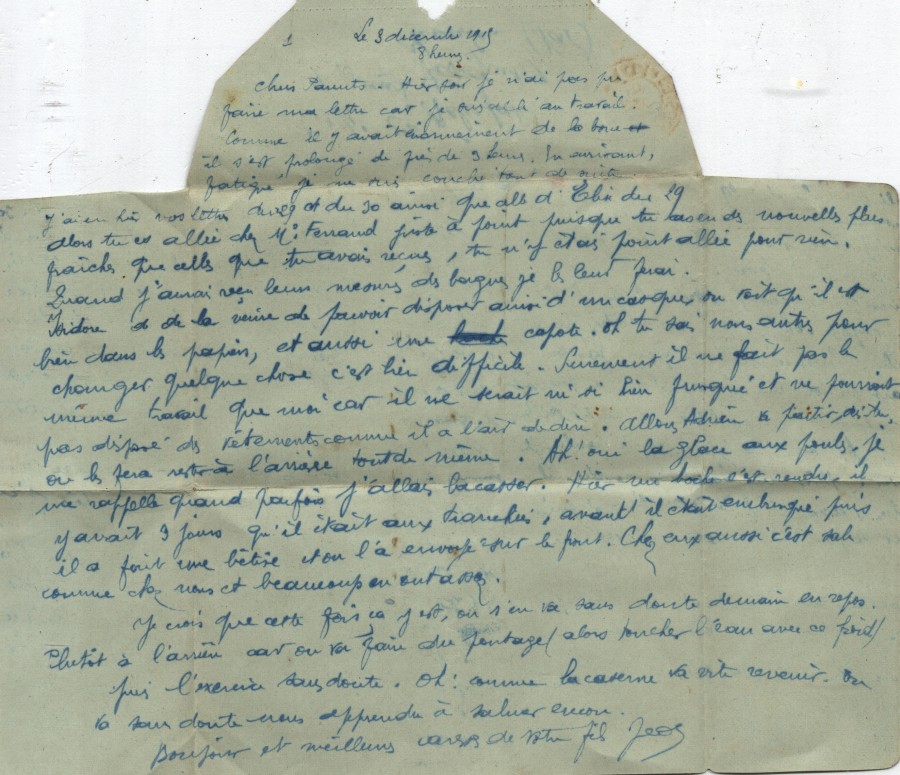 1
Le 3 décembre 1915
3 heures.
Chers Parents. Hier soir je n'ai pas pu
faire ma lettre car je suis allé au travail.
Comme il y avait énormément de la boue
il s'est prolongé de près de 3 heures. En arrivant,
fatigué je me suis couché tout de suite
J'ai eu hier vos lettres du 29 et du 30 ainsi que celle d' du 29
alors tu es allée chez Mr Ferrand juste à point puisque tu as eu des nouvelles plus
fraîches que celles que tu avais reçues, tu n'y étais point allée pour rien.
Quand j'aurai reçu leurs mesures des bagues je les leur ferai.
Isidore a de la veine de pouvoir disposer ainsi d'un casque, on voit qu'il est
bien dans les papiers, et aussi une capote. Oh tu sais nous autres pour
changer quelque chose c'est bien difficile. Surement il ne fait pas le
même travail que moi car il ne serait ni si bien frusqué et ne pourrait
pas disposé des vêtements comme il a l'air de dire. Allons Adrien va partir,
ou les fera rester à l'arrière tout de même. Ah! oui la glace aux pouls. je
me rappelle quand parfois j'allais la casser. Hier un boche s'est rendu, il
y avait 3 jours qu'il était aux tranchées, avant il était embusqué puis
il a fait une bêtise et on l'a envoyé sur le front. Chez eux aussi c'est sale
comme chez nous et beaucoup en ont assez.
Je crois que cette fois ça y est, on s'en va sans doute demain en repos.
Plutôt à l'arrière car on va faire du pontage (alors toucher l'eau avec ce froid)
puis l'exercice sans doute. Oh! comme la caserne va vite revenir. On
va sans doute nous apprendre à saluer encore.
Bonjour et meilleures caresses de votre fils